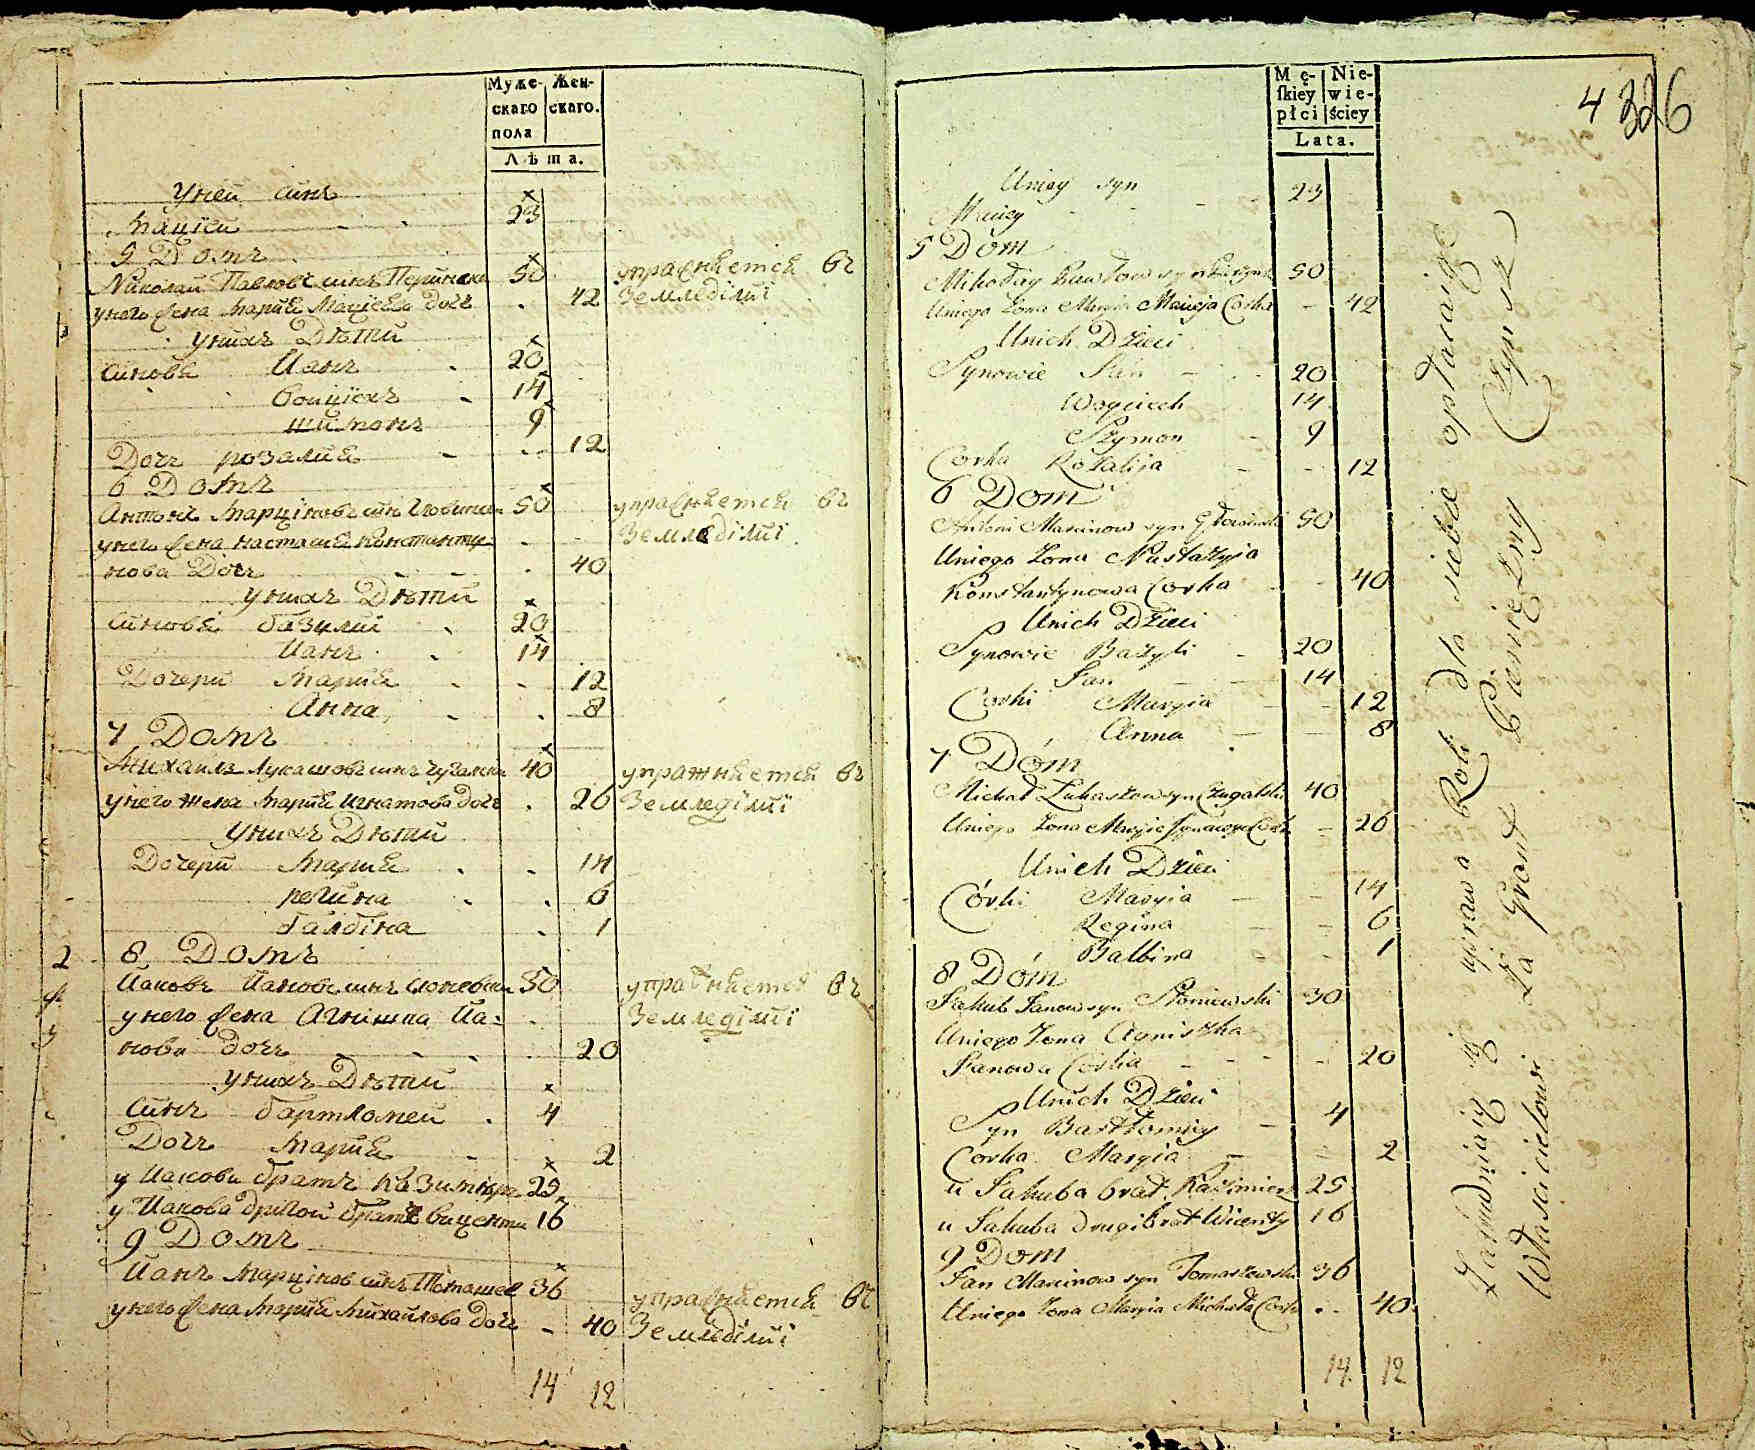 Муже-
скаго
пола
Жен-
скаго.
Лѣта.
Уней синъ
Мацїей 23
5 Домъ
Николай Павловъ синъ 50 упражняется въ
унего жена Марія Мацїева дочъ 42 Земледілиї
унихъ Дѣти
Синовя Ианъ 20
Войцїехъ 14
Шимонъ 9
Дочъ розалия 12
6 Домъ
Антонъ Марцїновъ синъ 50 упражняется въ
унего жена настазия Константи- Земледілиї
нова Дочъ 40
унихъ Дѣти
Синовя базилий 20
Ианъ 14
Дочери Мария 12
Анна 8
7 Домъ
Михаилъ Лукашовъ синъ 40 упражняется въ
унего жена Мария игнатова дочъ 26 Земледілиї
унихъ Дѣти
Дочери Мария 14
регина 6
балбїна 1
2 8 Домъ
Иаковъ Иановъ синъ 30 упражняется въ
унего жена Агнїшка Иа- Земледілиї
нова дочъ 20
унихъ Дѣти
Синъ бартломей 4
Дочъ Мария 2
у Иакова братъ Казимиръ 25
у Иакова другой братъ вицентий 16
9 Домъ
Ианъ Марцїновъ синъ 36
унего жена Мария Михайлова дочъ 40 упражняется въ
Земледілиї
14 12
Mę-
ſkiey
płci
Nie-
wie-
ściey
Lata.
4 326
Uniey syn 23
Maciey
5 Dom
Mikołay Pawłow syn 50
Uniego Żona Maryia Macieja Corka 42
Unich Dzieci
Synowie Jan 20
Woyciech 14
Szymon 9
Corka Rozalija 12
6 Dom
Antoni Marcinow syn 50
Uniego Żona Nastazyia
Konstantynowa Corka 40
Unich Dzieci
Synowie Bazyli 20
Jan 14
Corki Maryia 12
Anna 8
7 Dóm
Michał Łukaszow syn Czugalski 40
Uniego Żona Maryia Ignacego Cork 26
Unich Dzieci
Córki Maryia 14
Regina 6
Balbina 1
8 Dóm
Jakub Janow syn Słoniewski 30
Uniego Żona Agniszka
Janowa Corka 20
Unich Dzieci
Syn Bartłomiey 4
Corka Maryia 2
u Jakuba brat Kazimierz 25
u Jakuba drugi brat Wicenty 16
9 Dom
Jan Marcinow syn Tomaszewski 36
Uniego Żona Maryia Michała Cork 40
14 12
Zatrudniaią się uprawą Roli dla siebie opłacaiąc
Właścicielowi Za Grunt Pieniężny Czynsz